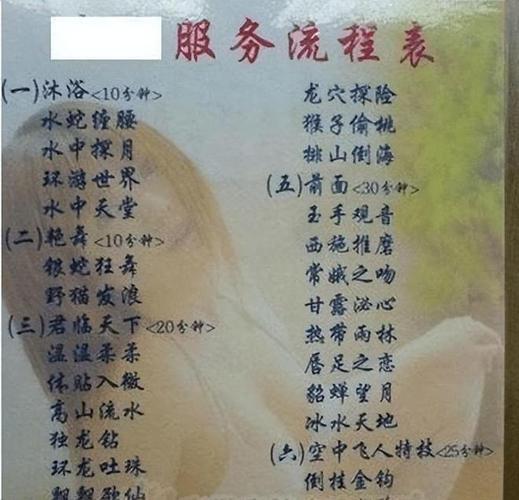 服务流程表
(一)沐浴<10分钟>
水蛇缠腰
水中探月
环游世界
水中天堂
(二)艳舞<10分钟>
银蛇狂舞
野猫发浪
(三)君临天下<20分钟>
温温柔柔
体贴入微
高山流水
独龙钻
环龙吐珠
飘飘欲仙
龙穴探险
猴子偷桃
排山倒海
(五)前面<30分钟>
玉手观音
西施推磨
常娥之吻
甘露泌心
热带雨林
唇足之恋
貂蝉望月
冰水天地
(六)空中飞人特技<25分钟>
倒挂金钩